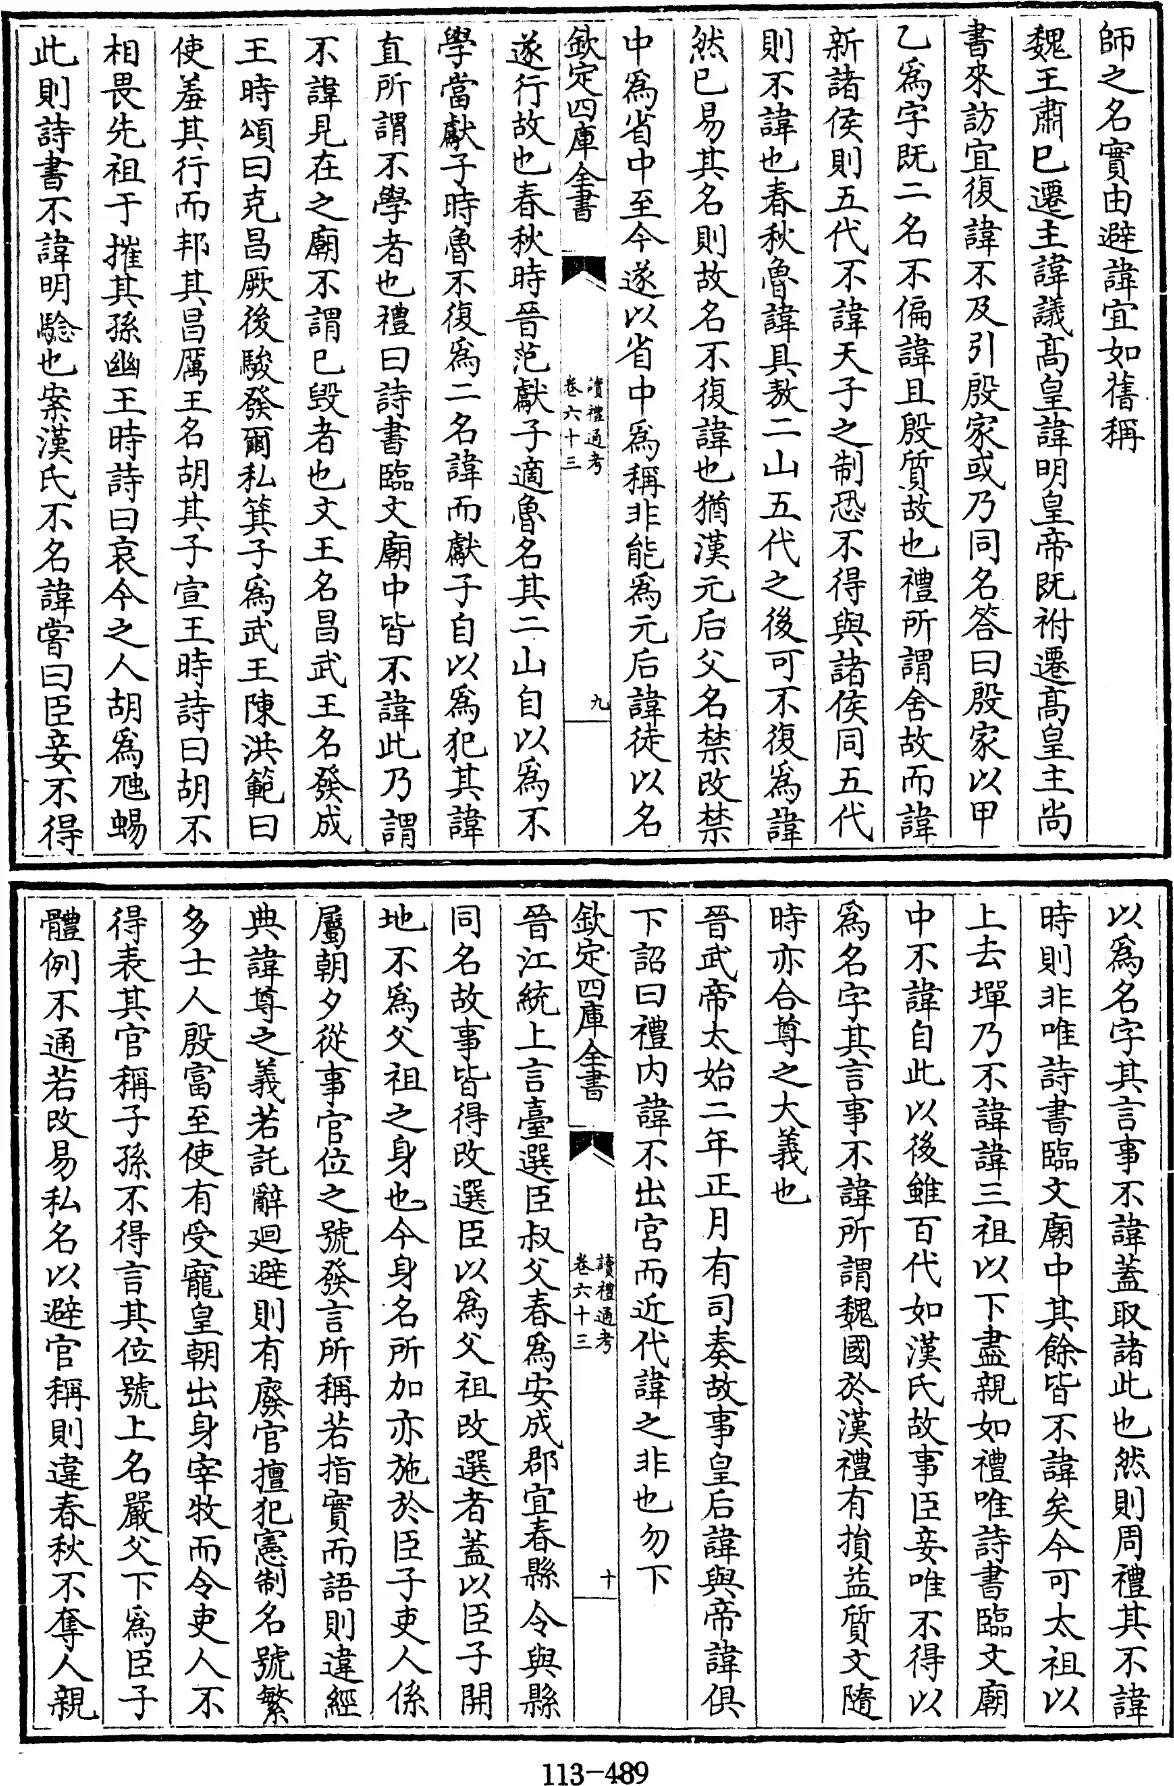 師之名實由避諱宜如舊稱
魏王肅已遷主諱議髙皇諱明皇帝既祔遷髙皇主尚
書來訪宜復諱不及引殷家或乃同名答曰殷家以甲
乙為字既二名不偏諱且殷質故也禮所謂舍故而諱
新諸侯則五代不諱天子之制恐不得與諸侯同五代
則不諱也春秋魯諱具敖二山五代之後可不復為諱
然已易其名則故名不復諱也猶漢元后父名禁改禁
中為省中至今遂以省中為稱非能為元后諱徒以名
欽定四庫全書
讀禮通考
卷六十三
九
遂行故也春秋時晉范獻子適魯名其二山自以為不
學當獻子時魯不復為二名諱而獻子自以為犯其諱
直所謂不學者也禮曰詩書臨文廟中皆不諱此乃謂
不諱見在之廟不謂已毀者也文王名昌武王名發成
王時頌曰克昌厥後駿發爾私箕子為武王陳洪範曰
使羞其行而邦其昌厲王名胡其子宣王時詩曰胡不
相畏先祖于摧其孫幽王時詩曰哀今之人胡為虺蜴
此則詩書不諱明驗也案漢氏不名諱嘗曰臣妾不得
以為名字其言事不諱蓋取諸此也然則周禮其不諱
時則非唯詩書臨文廟中其餘皆不諱矣今可太祖以
上去墠乃不諱諱三祖以下盡親如禮唯詩書臨文廟
中不諱自此以後雖百代如漢氏故事臣妾唯不得以
為名字其言事不諱所謂魏國於漢禮有損益質文隨
時亦合尊之大義也
晉武帝太始二年正月有司奏故事皇后諱與帝諱俱
下詔曰禮内諱不出宮而近代諱之非也勿下
欽定四庫全書
讀禮通考
卷六十三
十
晉江統上言臺選臣叔父春為安成郡宜春縣令與縣
同名故事皆得改選臣以為父祖改選者蓋以臣子開
地不為父祖之身也今身名所加亦施於臣子吏人係
屬朝夕從事官位之號發言所稱若指實而語則違經
典諱尊之義若託辭迴避則有廢官擅犯憲制名號繁
多士人殷富至使有受寵皇朝出身宰牧而令吏人不
得表其官稱子孫不得言其位號上名嚴父下為臣子
體例不通若改易私名以避官稱則違春秋不奪人親
113-489